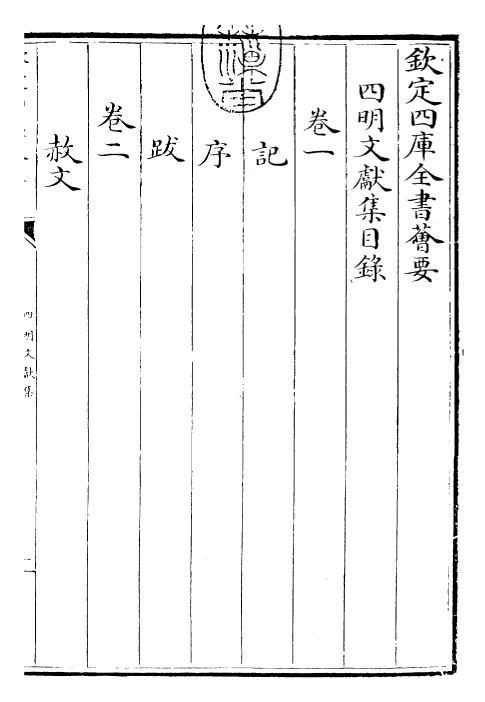 欽定四庫全書薈要
四明文獻集目錄
卷一
記
序
跋
卷二
赦文
四明文獻集